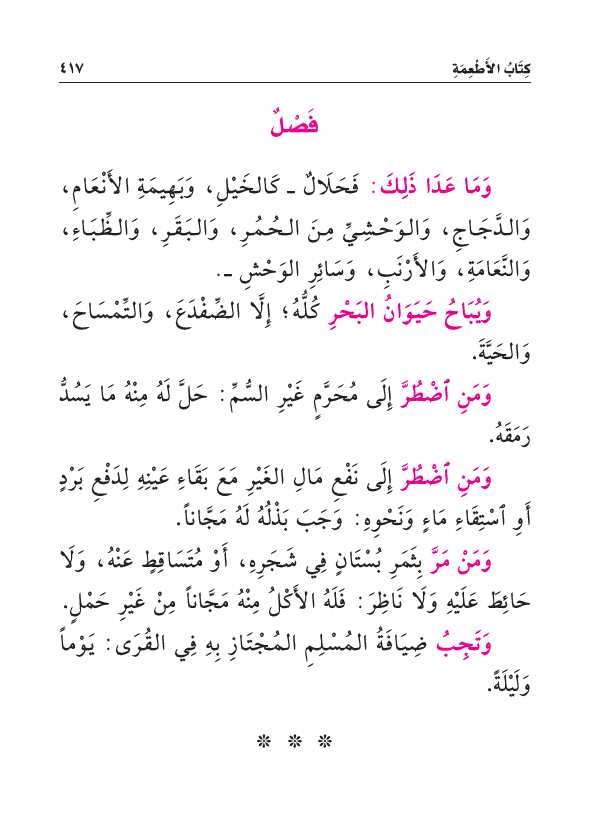 كِتَابُ الأَطْعِمَةِ ٤١٧
فَصْلٌ
وَمَا عَدَا ذَلِكَ: فَحَلَالٌ ـ كَالخَيْلِ، وَبَهِيمَةِ الأَنْعَامِ،
وَالدَّجَاجِ، وَالوَحْشِيِّ مِنَ الحُمُرِ، وَالبَقَرِ، وَالظِّبَاءِ،
وَالنَّعَامَةِ، وَالأَرْنَبِ، وَسَائِرِ الوَحْشِ ـ.
وَيُبَاحُ حَيَوَانُ البَحْرِ كُلُّهُ؛ إِلَّا الضِّفْدَعَ، وَالتِّمْسَاحَ،
وَالحَيَّةَ.
وَمَنِ ٱضْطُرَّ إِلَى مُحَرَّمٍ غَيْرِ السُّمِّ: حَلَّ لَهُ مِنْهُ مَا يَسُدُّ
رَمَقَهُ.
وَمَنِ ٱضْطُرَّ إِلَى نَفْعِ مَالِ الغَيْرِ مَعَ بَقَاءِ عَيْنِهِ لِدَفْعِ بَرْدٍ
أَوِ ٱسْتِقَاءِ مَاءٍ وَنَحْوِهِ: وَجَبَ بَذْلُهُ لَهُ مَجَّاناً.
وَمَنْ مَرَّ بِثَمَرِ بُسْتَانٍ فِي شَجَرِهِ، أَوْ مُتَسَاقِطٍ عَنْهُ، وَلَا
حَائِطَ عَلَيْهِ وَلَا نَاظِرَ: فَلَهُ الأَكْلُ مِنْهُ مَجَّاناً مِنْ غَيْرِ حَمْلٍ.
وَتَجِبُ ضِيَافَةُ المُسْلِمِ المُجْتَازِ بِهِ فِي القُرَى: يَوْماً
وَلَيْلَةً.